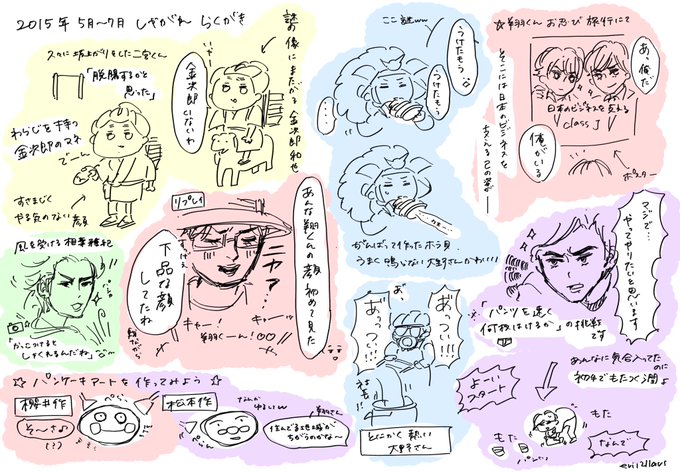 2015年 5月〜7月 しやがれ らくがき
久々に坂上がりをした二宮くん
「脱腸するかと
思った」
わらじを持つ
金次郎のマネ
でーん
すさまじく
やる気のない顔
謎の像にまたがる金次郎和也
金次郎
いないわ
ここ謎ww
うけたもう
うけたもう
がんばって作ったホラ貝
うまく鳴らない大野さんかわいい
☆翔くん お忍び旅行にて
そこには日本のビジネスを
あ、俺だ
日本のビジネスを変える
class J
俺がいる
ポスター
風を受ける相葉雅紀
「かっこつけると
しゃくれるんだね」
リプレイ
ニカァ…
あんな翔くんの顔初めて見た
下品な顔
してたね
キャー!
キャーッ
翔くーん!
あ、
あっつい!!!
あっつい!!!
とにかく熱い
大野さん
マジで…
やってやりたいと思います
「パンツを速く
何枚はけるか」の挑戦
です
あんなに気合入ってた
のに
初手でもたつく潤よ
よーい
スタート
もた
もた
なんで
☆パンケーキアートを作ってみよう☆
櫻井作
そ〜さぁ
(!?)
松本作
翔さん
住んでる地域が
ちがうのかな〜